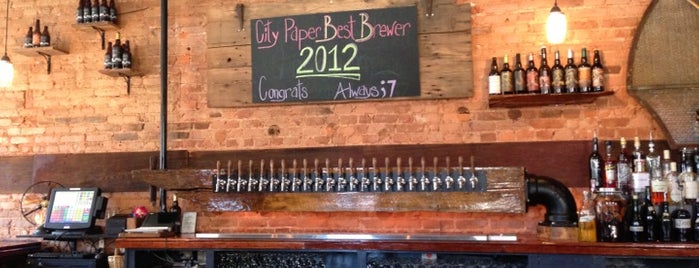 City Paper Best Brewer
2012
Congrats Always ;7